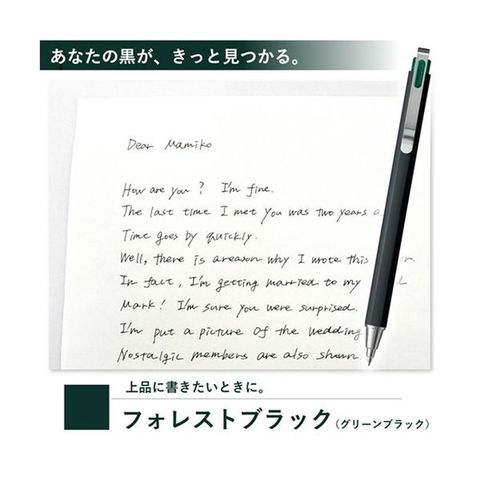 あなたの黒が、きっと見つかる。
Dear Mamiko
How are you? I'm fine.
The last time I met you was two years
Time goes by quickly.
Well, there is areason why I wrote this
In fact, I'm getting married to my
Mark! I'm sure you were surprised.
I'm put a picture of the wedding
Nostalgic members are also shown.
上品に書きたいときに。
フォレストブラック(グリーンブラック)